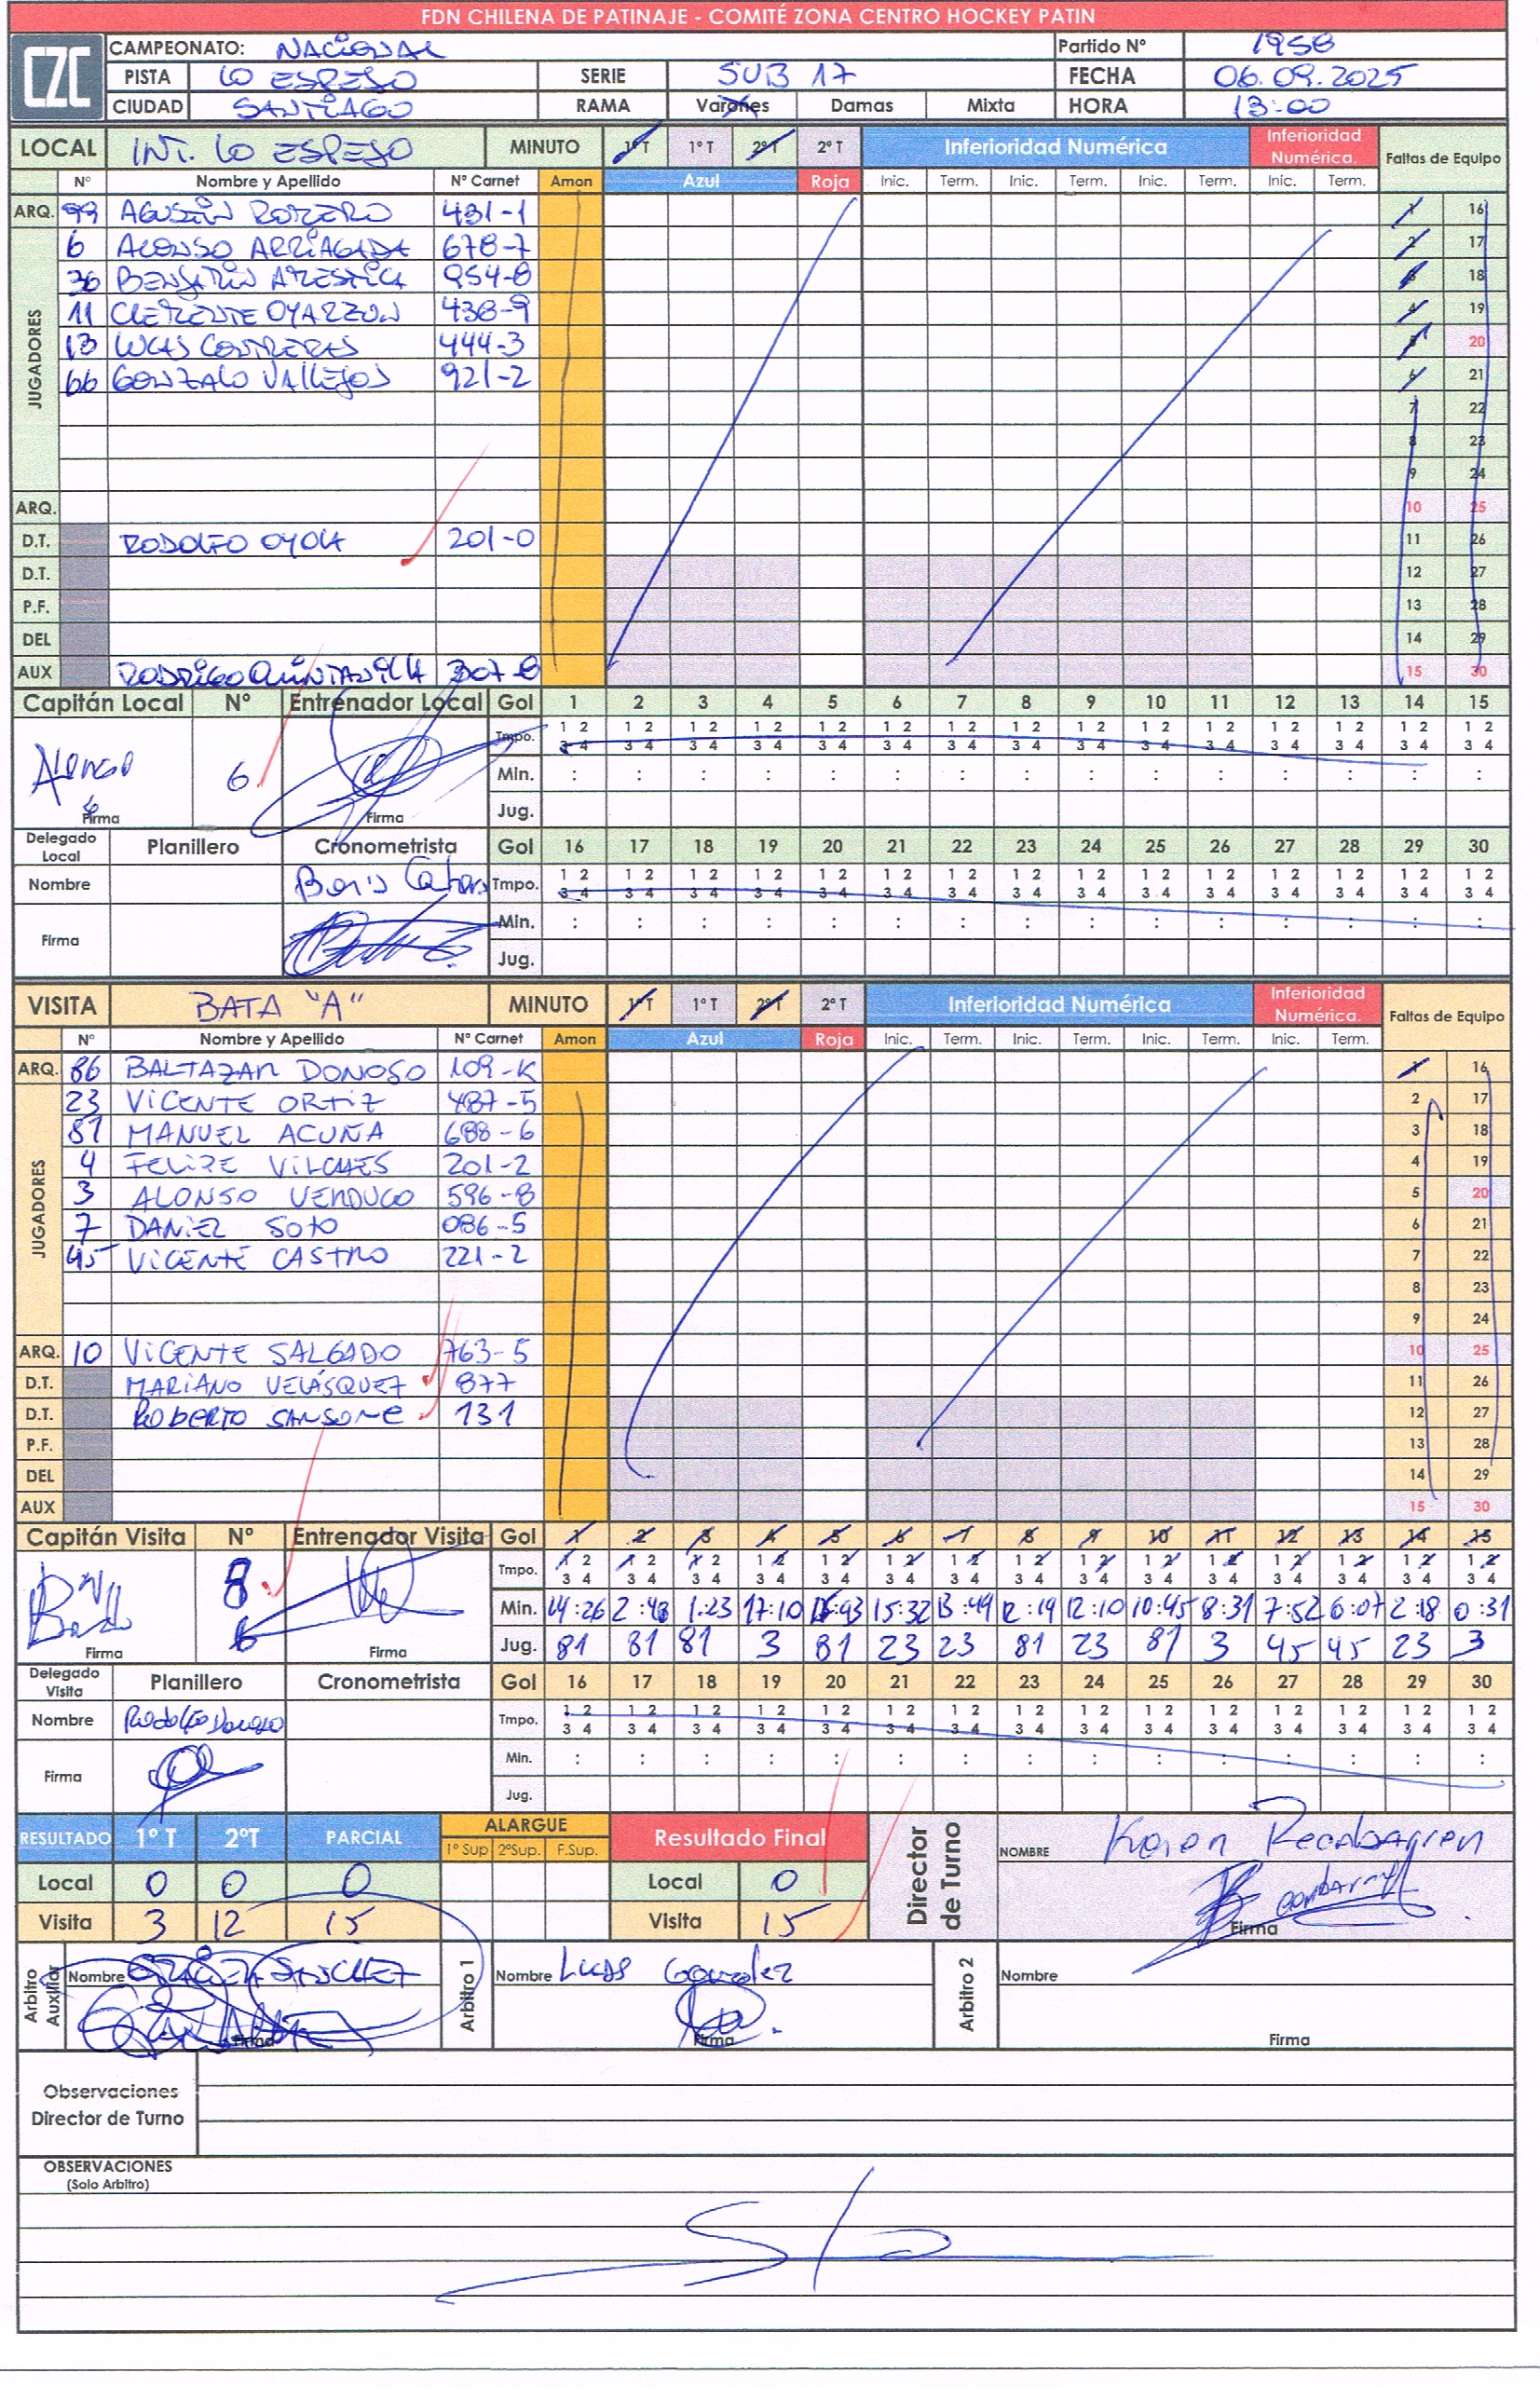 FDN CHILENA DE PATINAJE - COMITÉ ZONA CENTRO HOCKEY PATIN
CZC
CAMPEONATO: NACIONAL Partido Nº 1958
PISTA LO ESPEJO SERIE SUB 17 FECHA 06.09.2025
CIUDAD SANTIAGO RAMA Varones Damas Mixta HORA 13:00
LOCAL INT. LO ESPEJO MINUTO 1º T 1º T 2º T 2º T Inferioridad Numérica Inferioridad Numérica. Faltas de Equipo
Nº Nombre y Apellido Nº Carnet Amon Azul Roja Inic. Term. Inic. Term. Inic. Term. Inic. Term.
ARQ. 99 AGUSTIN ROMERO 431-1 1 16
JUGADORES
6 ALONSO ARRIAGADA 678-7 2 17
30 BENJAMIN ARESTICA 954-8 3 18
11 CLEMENTE OYARZUN 438-9 4 19
13 LUCAS CONTRERAS 444-3 5 20
66 GONZALO VALLEJOS 921-2 6 21
7 22
8 23
9 24
ARQ. 10 25
D.T. RODOLFO OYOLA 201-0 11 26
D.T. 12 27
P.F. 13 28
DEL 14 29
AUX RODRIGO QUINTANILLA 307-8 15 30
Capitán Local Nº Entrenador Local Gol 1 2 3 4 5 6 7 8 9 10 11 12 13 14 15
Tmpo. 1 2 1 2 1 2 1 2 1 2 1 2 1 2 1 2 1 2 1 2 1 2 1 2 1 2 1 2 1 2
3 4 3 4 3 4 3 4 3 4 3 4 3 4 3 4 3 4 3 4 3 4 3 4 3 4 3 4 3 4
Alonso 6 Min. : : : : : : : : : : : : : : :
Firma Firma Jug.
Delegado Local Planillero Cronometrista Gol 16 17 18 19 20 21 22 23 24 25 26 27 28 29 30
Nombre Boris Tmpo. 1 2 1 2 1 2 1 2 1 2 1 2 1 2 1 2 1 2 1 2 1 2 1 2 1 2 1 2 1 2
3 4 3 4 3 4 3 4 3 4 3 4 3 4 3 4 3 4 3 4 3 4 3 4 3 4 3 4 3 4
Firma Min. : : : : : : : : : : : : : : :
Jug.
VISITA BATA "A" MINUTO 1º T 1º T 2º T 2º T Inferioridad Numérica Inferioridad Numérica. Faltas de Equipo
Nº Nombre y Apellido Nº Carnet Amon Azul Roja Inic. Term. Inic. Term. Inic. Term. Inic. Term.
ARQ. 86 BALTAZAR DONOSO 109-K 1 16
JUGADORES
23 VICENTE ORTIZ 487-5 2 17
81 MANUEL ACUÑA 688-6 3 18
4 FELIPE VILCHES 201-2 4 19
3 ALONSO VERDUGO 596-8 5 20
7 DANIEL SOTO 086-5 6 21
45 VICENTE CASTRO 221-2 7 22
8 23
9 24
ARQ. 10 VICENTE SALGADO 763-5 10 25
D.T. MARIANO VELÁSQUEZ 877 11 26
D.T. ROBERTO SANSONE 131 12 27
P.F. 13 28
DEL 14 29
AUX 15 30
Capitán Visita Nº Entrenador Visita Gol 1 2 3 4 5 6 7 8 9 10 11 12 13 14 15
Tmpo. 1 2 1 2 1 2 1 2 1 2 1 2 1 2 1 2 1 2 1 2 1 2 1 2 1 2 1 2 1 2
3 4 3 4 3 4 3 4 3 4 3 4 3 4 3 4 3 4 3 4 3 4 3 4 3 4 3 4 3 4
8 6 Min. 14:26 2:48 1:23 17:10 15:43 15:32 13:49 12:19 12:10 10:45 8:31 7:52 6:07 2:18 0:31
Firma Firma Jug. 81 81 81 3 81 23 23 81 23 81 3 45 45 23 3
Delegado Visita Planillero Cronometrista Gol 16 17 18 19 20 21 22 23 24 25 26 27 28 29 30
Nombre Rodolfo Donoso Tmpo. 1 2 1 2 1 2 1 2 1 2 1 2 1 2 1 2 1 2 1 2 1 2 1 2 1 2 1 2 1 2
3 4 3 4 3 4 3 4 3 4 3 4 3 4 3 4 3 4 3 4 3 4 3 4 3 4 3 4 3 4
Firma Min. : : : : : : : : : : : : : : :
Jug.
RESULTADO 1º T 2ºT PARCIAL ALARGUE Resultado Final Director de Turno NOMBRE Karen Recabarren
1º Sup 2ºSup. F.Sup.
Local 0 0 0 Local 0
Visita 3 12 15 Visita 15 Firma
Arbitro Auxiliar Nombre SANCHEZ Arbitro 1 Nombre Lucas Gonzalez Arbitro 2 Nombre
Firma Firma Firma
Observaciones
Director de Turno
OBSERVACIONES
(Solo Arbitro)
S/O